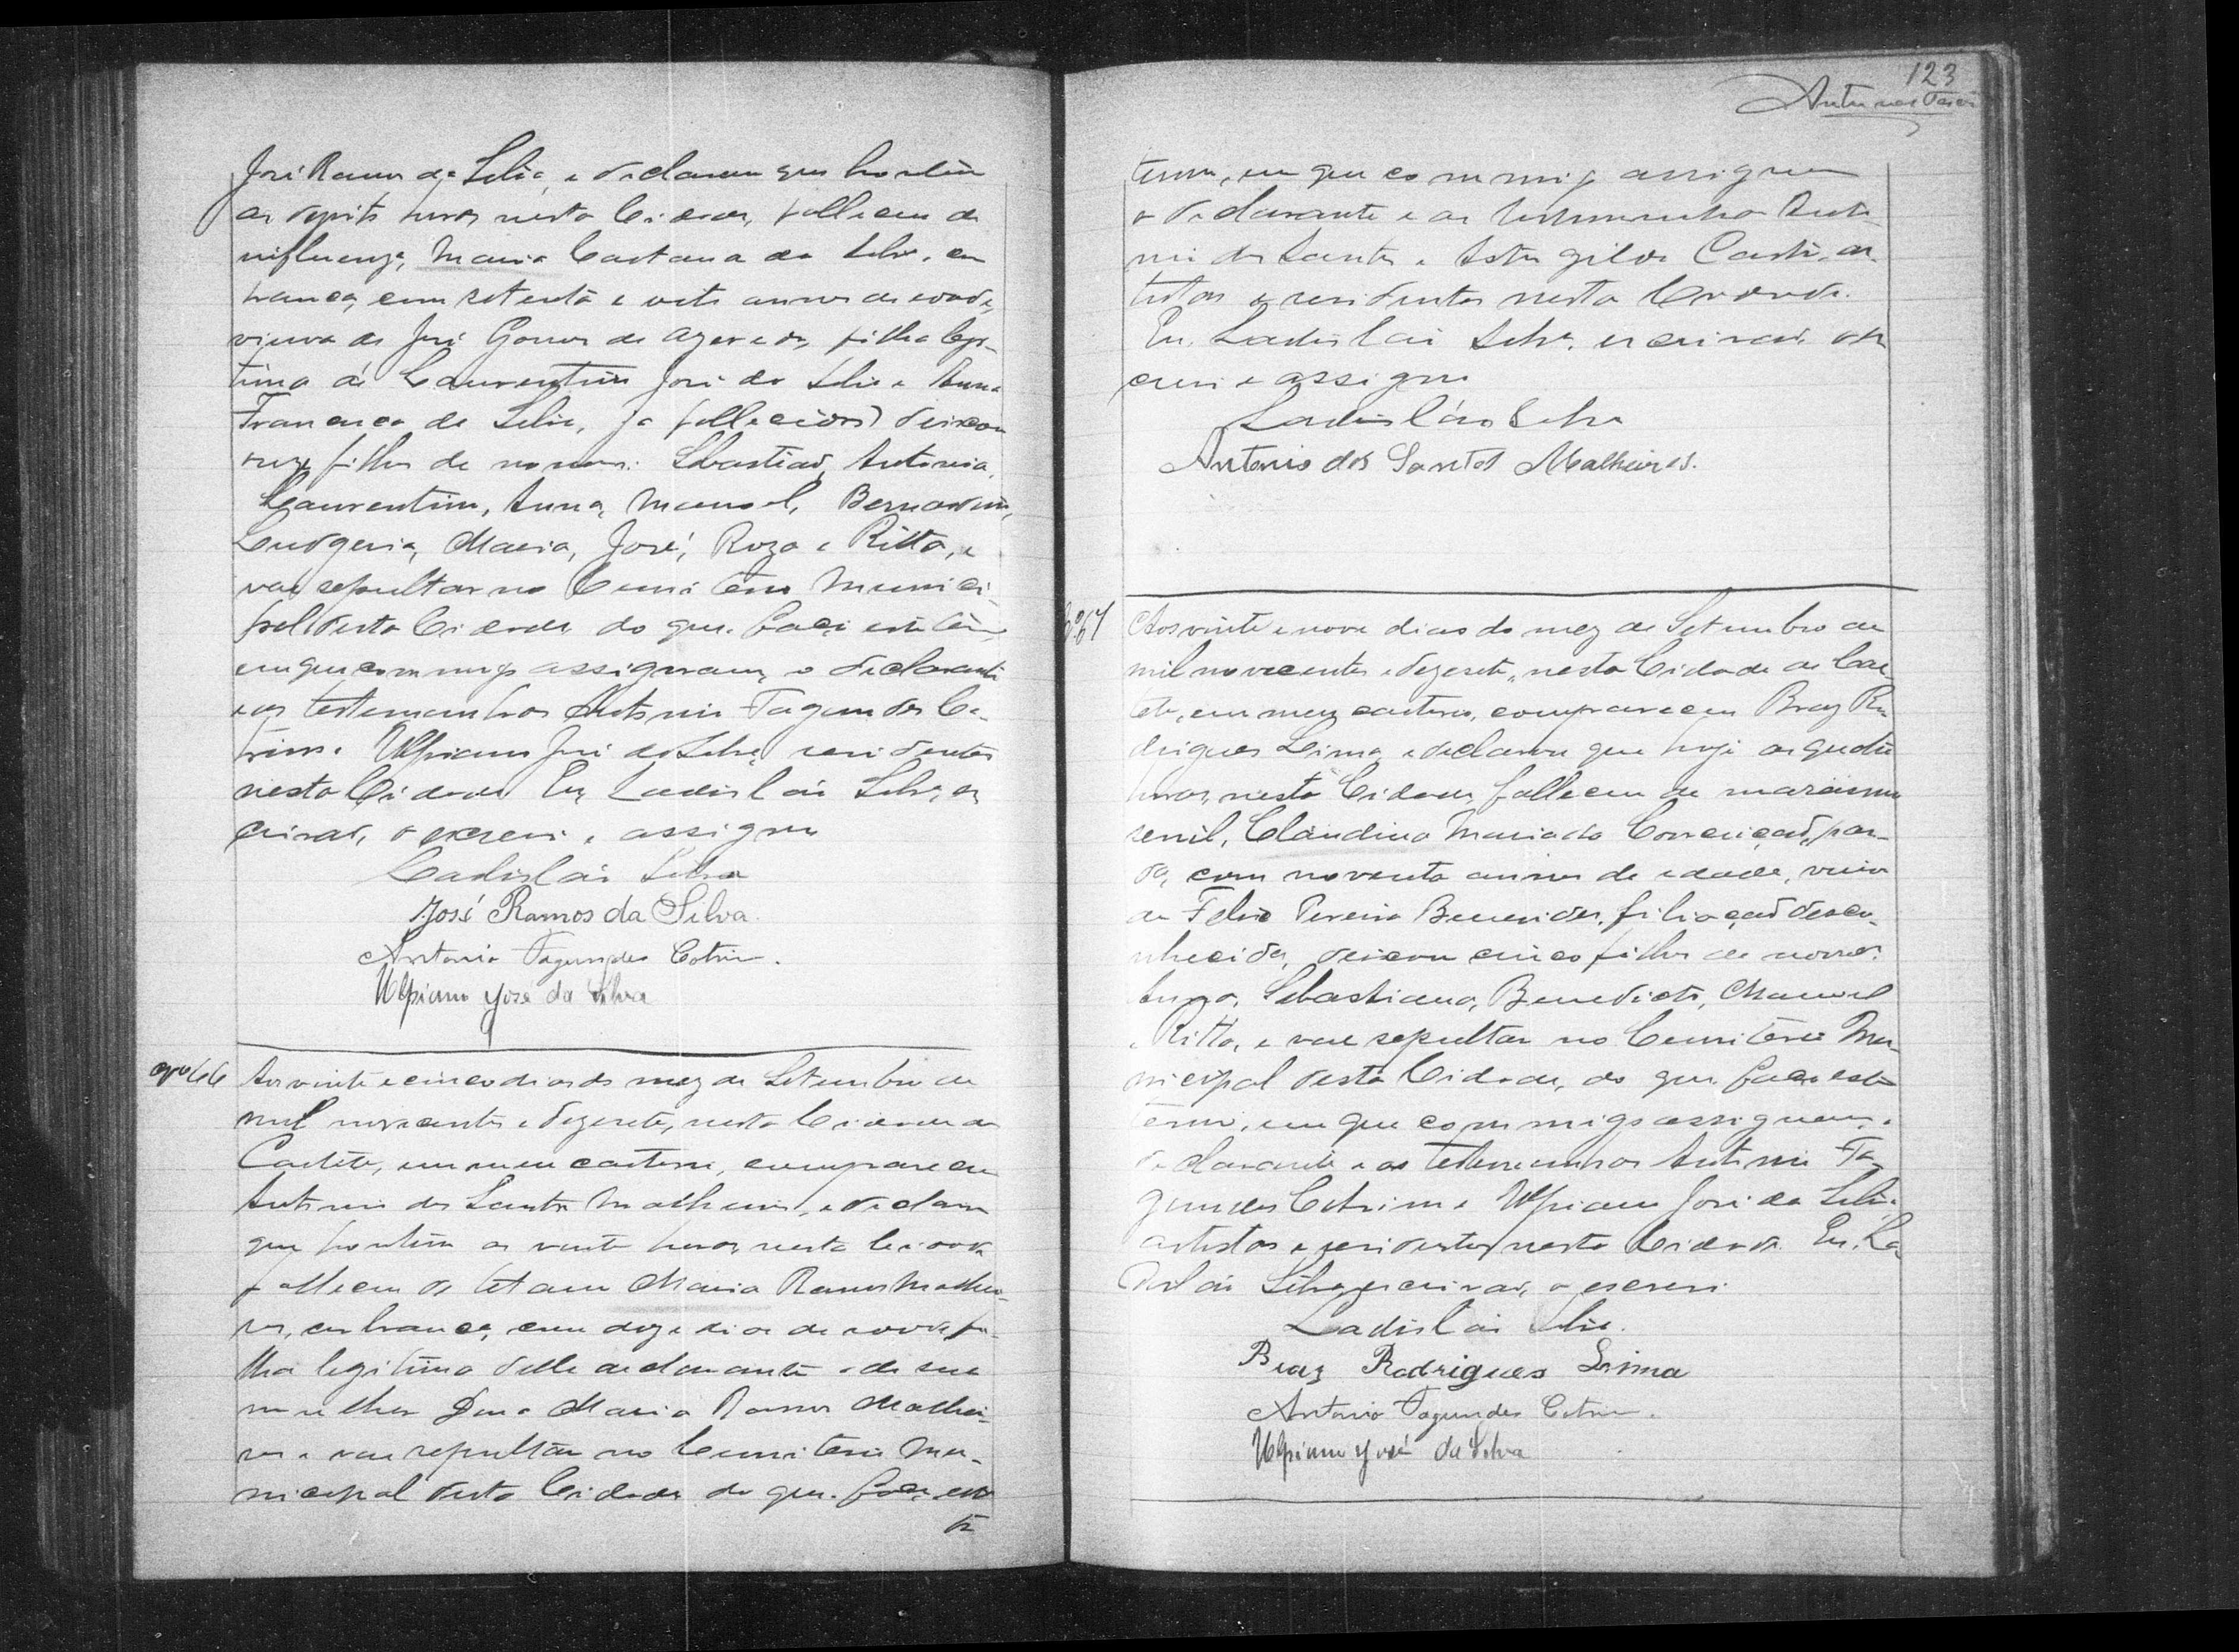 José Ramos da Silva, e declarou que hontem
as dezoito horas nesta Cidade, falleceu de
influenza, Maria Caetana da Silva, em
branca, com setenta e oito annos de edade,
viuva de José Gomes de Azevedo, filha legi-
tima de Laurentino José da Silva e Anna
Francisca da Silva, ja fallecidos) deixou
onze filhos de nomes: Sebastião, Antonia,
Laurentino, Anna, Manoel, Bernardino,
Leudgeria, Maria, José, Roza e Ritta, e
vae sepultar no Cemiterio Munici-
pal desta Cidade do que faço este têr-
em que commigo assignam, o declarante
e as testemunhas Antonio Fagundes Co-
trim e Ulpiano José da Silva, residentes
nesta Cidade Eu, Ladisláo Silva, es
crivão, o escrevi e assigno
Ladisláo Silva
José Ramos da Silva.
Antonio Fagundes Cotrim.
Ulpiano José da Silva
66 Aos vinte e cinco dias do mez de Setembro de
mil novecentos e dezesete, nesta Cidade de
Caeteté, em meu cartorio, compareceu
Antonio dos Santos Malheiros, e declarou
que hontem as vinte horas nesta Cidade
falleceu de tetano Maria Ramos Malhei-
ros, côr branca, com doze dias de edade, fi-
lha legitima delle declarante e de sua
mulher Dona Maria Ramos Malhei-
ros e vae sepultar no Cemiterio Mu-
nicipal desta Cidade do que faço este
te
123
Antunes
termo, em que commigo assignam
o declarante e as testemunhas Anto
nio dos Santos e Astrogildo Castro, ar
tistas e residentes nesta Cidade.
Eu, Ladisláo Silva, escrivão, o es
crevi e assigno
Ladisláo Silva
Antonio dos Santos Malheiros.
67 Aos vinte e nove dias do mez de Setembro de
mil novecentos e dezesete, nesta Cidade de Cae
teté, em meu cartorio, compareceu Braz Ro
drigues Lima, e declarou que hoje as
horas, nesta Cidade, falleceu de marasmo
senil, Claudina Maria da Conceição, par-
da, com noventa annos de edade, viuva
de Felix Pereira Benevides, filiação desco-
nhecida, deixou cinco filhos de nomes:
Anna, Sebastiana, Benedicto, Manoel
e Ritta, e vae sepultar no Cemiterio Mu-
nicipal desta Cidade, do que faço este
termo, em que commigo assignam, o
declarante e as testemunhas Antonio Fa
gundes Cotrim e Ulpiano José da Silva,
artistas e residentes nesta Cidade. Eu, La
disláo Silva, escrivão, o escrevi
Ladisláo Silva.
Braz Rodrigues Lima
Antonio Fagundes Cotrim.
Ulpiano José da Silva